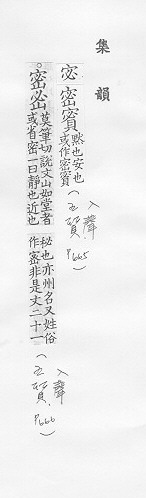 集韻
宓密𡪙
默也安也
或作密𡪙
入聲
(五質
P665)
密𡶇
莫筆切說文山如堂者
或省密一曰靜也近也
祕也亦州名又姓俗
作宻非是文二十一
入聲
(五質
P666)